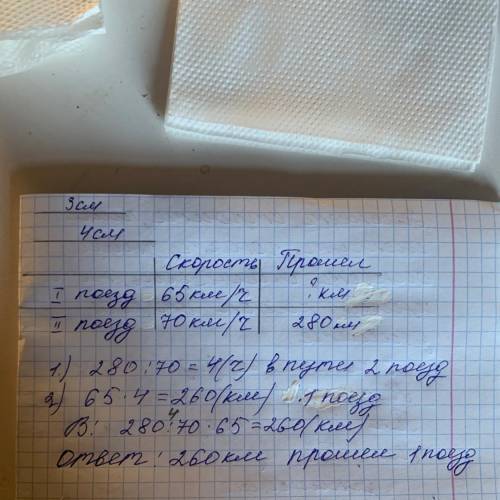 3 см
4 см
Скорость Прошёл
I поезд 65 км/ч ? км
II поезд 70 км/ч 280 км
1) 280 : 70 = 4 (ч) в пути 2 поезд
2) 65 · 4 = 260 (км) 1 поезд
В: 280 : 70 · 65 = 260 (км)
4
Ответ : 260 км прошел 1 поезд